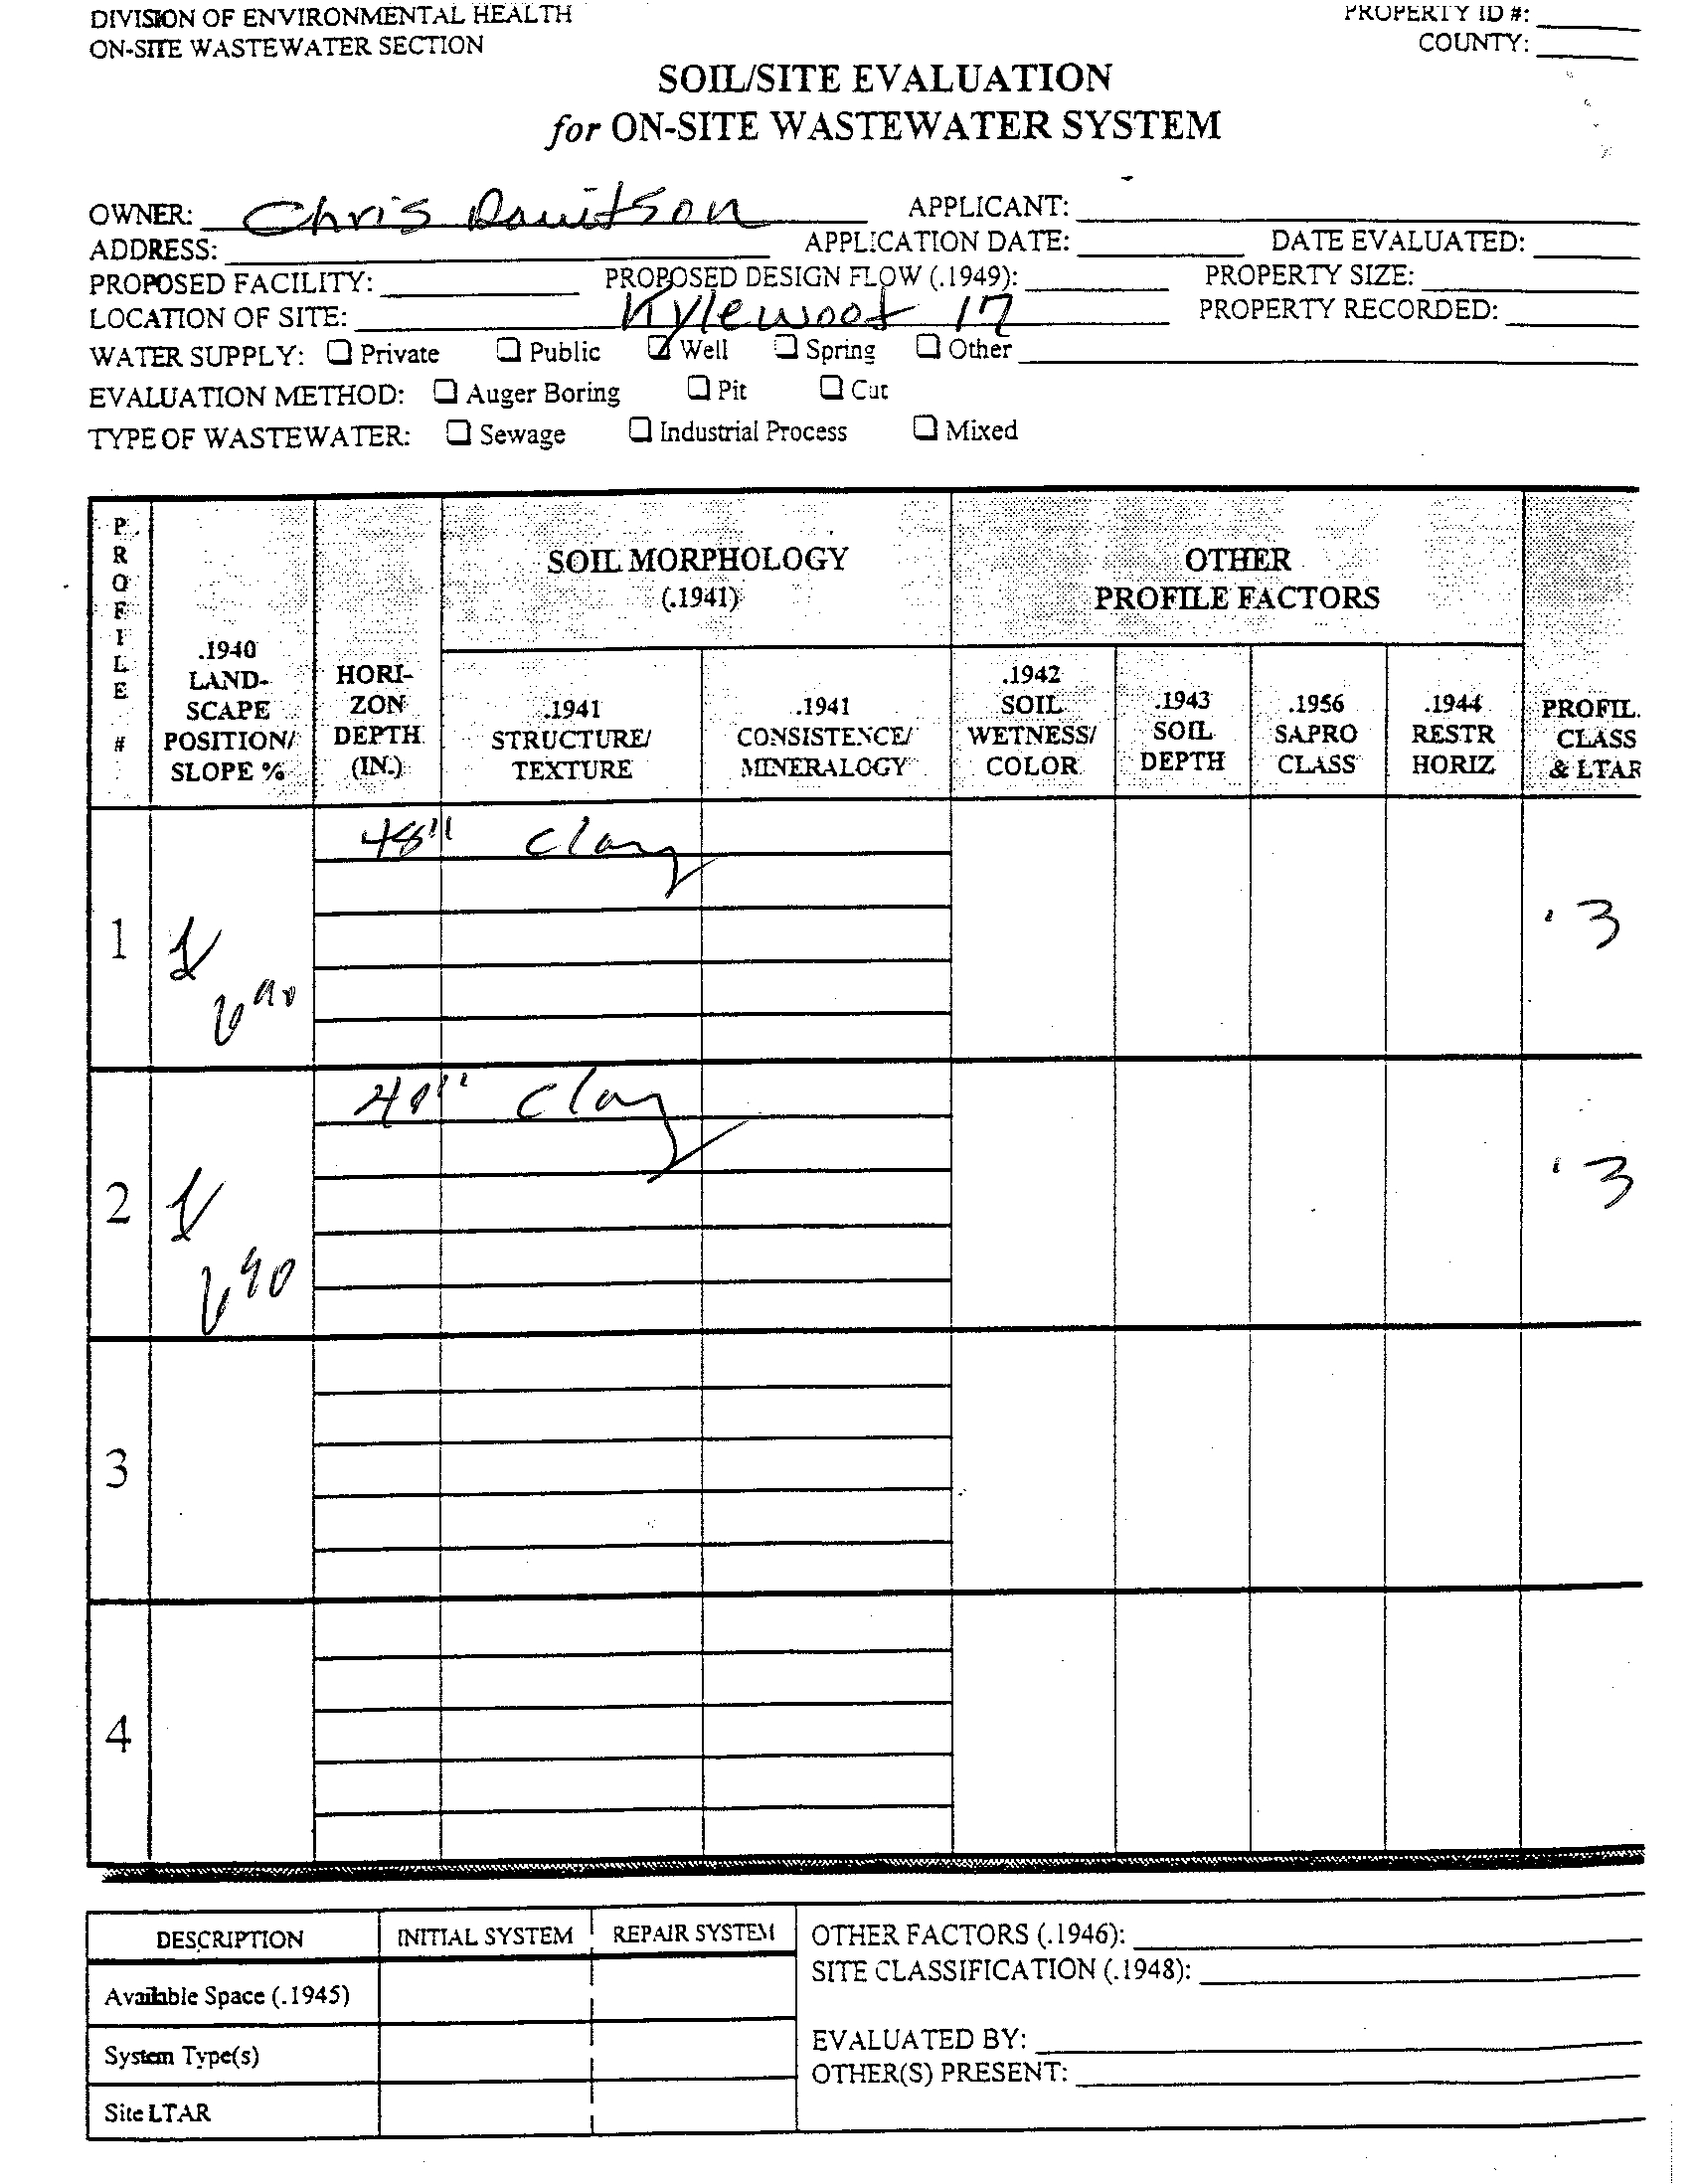 DIVISION OF ENVIRONMENTAL HEALTH
PROPERTY ID #:
ON-SITE WASTEWATER SECTION
COUNTY:
SOIL/SITE EVALUATION
for ON-SITE WASTEWATER SYSTEM
OWNER: Chris Davitson APPLICANT:
ADDRESS: APPLICATION DATE: DATE EVALUATED:
PROPOSED FACILITY: PROPOSED DESIGN FLOW (.1949): PROPERTY SIZE:
LOCATION OF SITE: Kylewoot 17 PROPERTY RECORDED:
WATER SUPPLY: Private Public Well Spring Other
EVALUATION METHOD: Auger Boring Pit Cut
TYPE OF WASTEWATER: Sewage Industrial Process Mixed
PROFILE #
.1940
LAND-
SCAPE
POSITION/
SLOPE %
HORI-
ZON
DEPTH
(IN.)
SOIL MORPHOLOGY
(.1941)
.1941
STRUCTURE/
TEXTURE
.1941
CONSISTENCE/
MINERALOGY
OTHER
PROFILE FACTORS
.1942
SOIL
WETNESS/
COLOR
.1943
SOIL
DEPTH
.1956
SAPRO
CLASS
.1944
RESTR
HORIZ
PROFIL.
CLASS
& LTAR
48" Clay
1 .3
40" Clay
2 .3
3
4
DESCRIPTION INITIAL SYSTEM REPAIR SYSTEM
Available Space (.1945)
System Type(s)
Site LTAR
OTHER FACTORS (.1946):
SITE CLASSIFICATION (.1948):
EVALUATED BY:
OTHER(S) PRESENT: